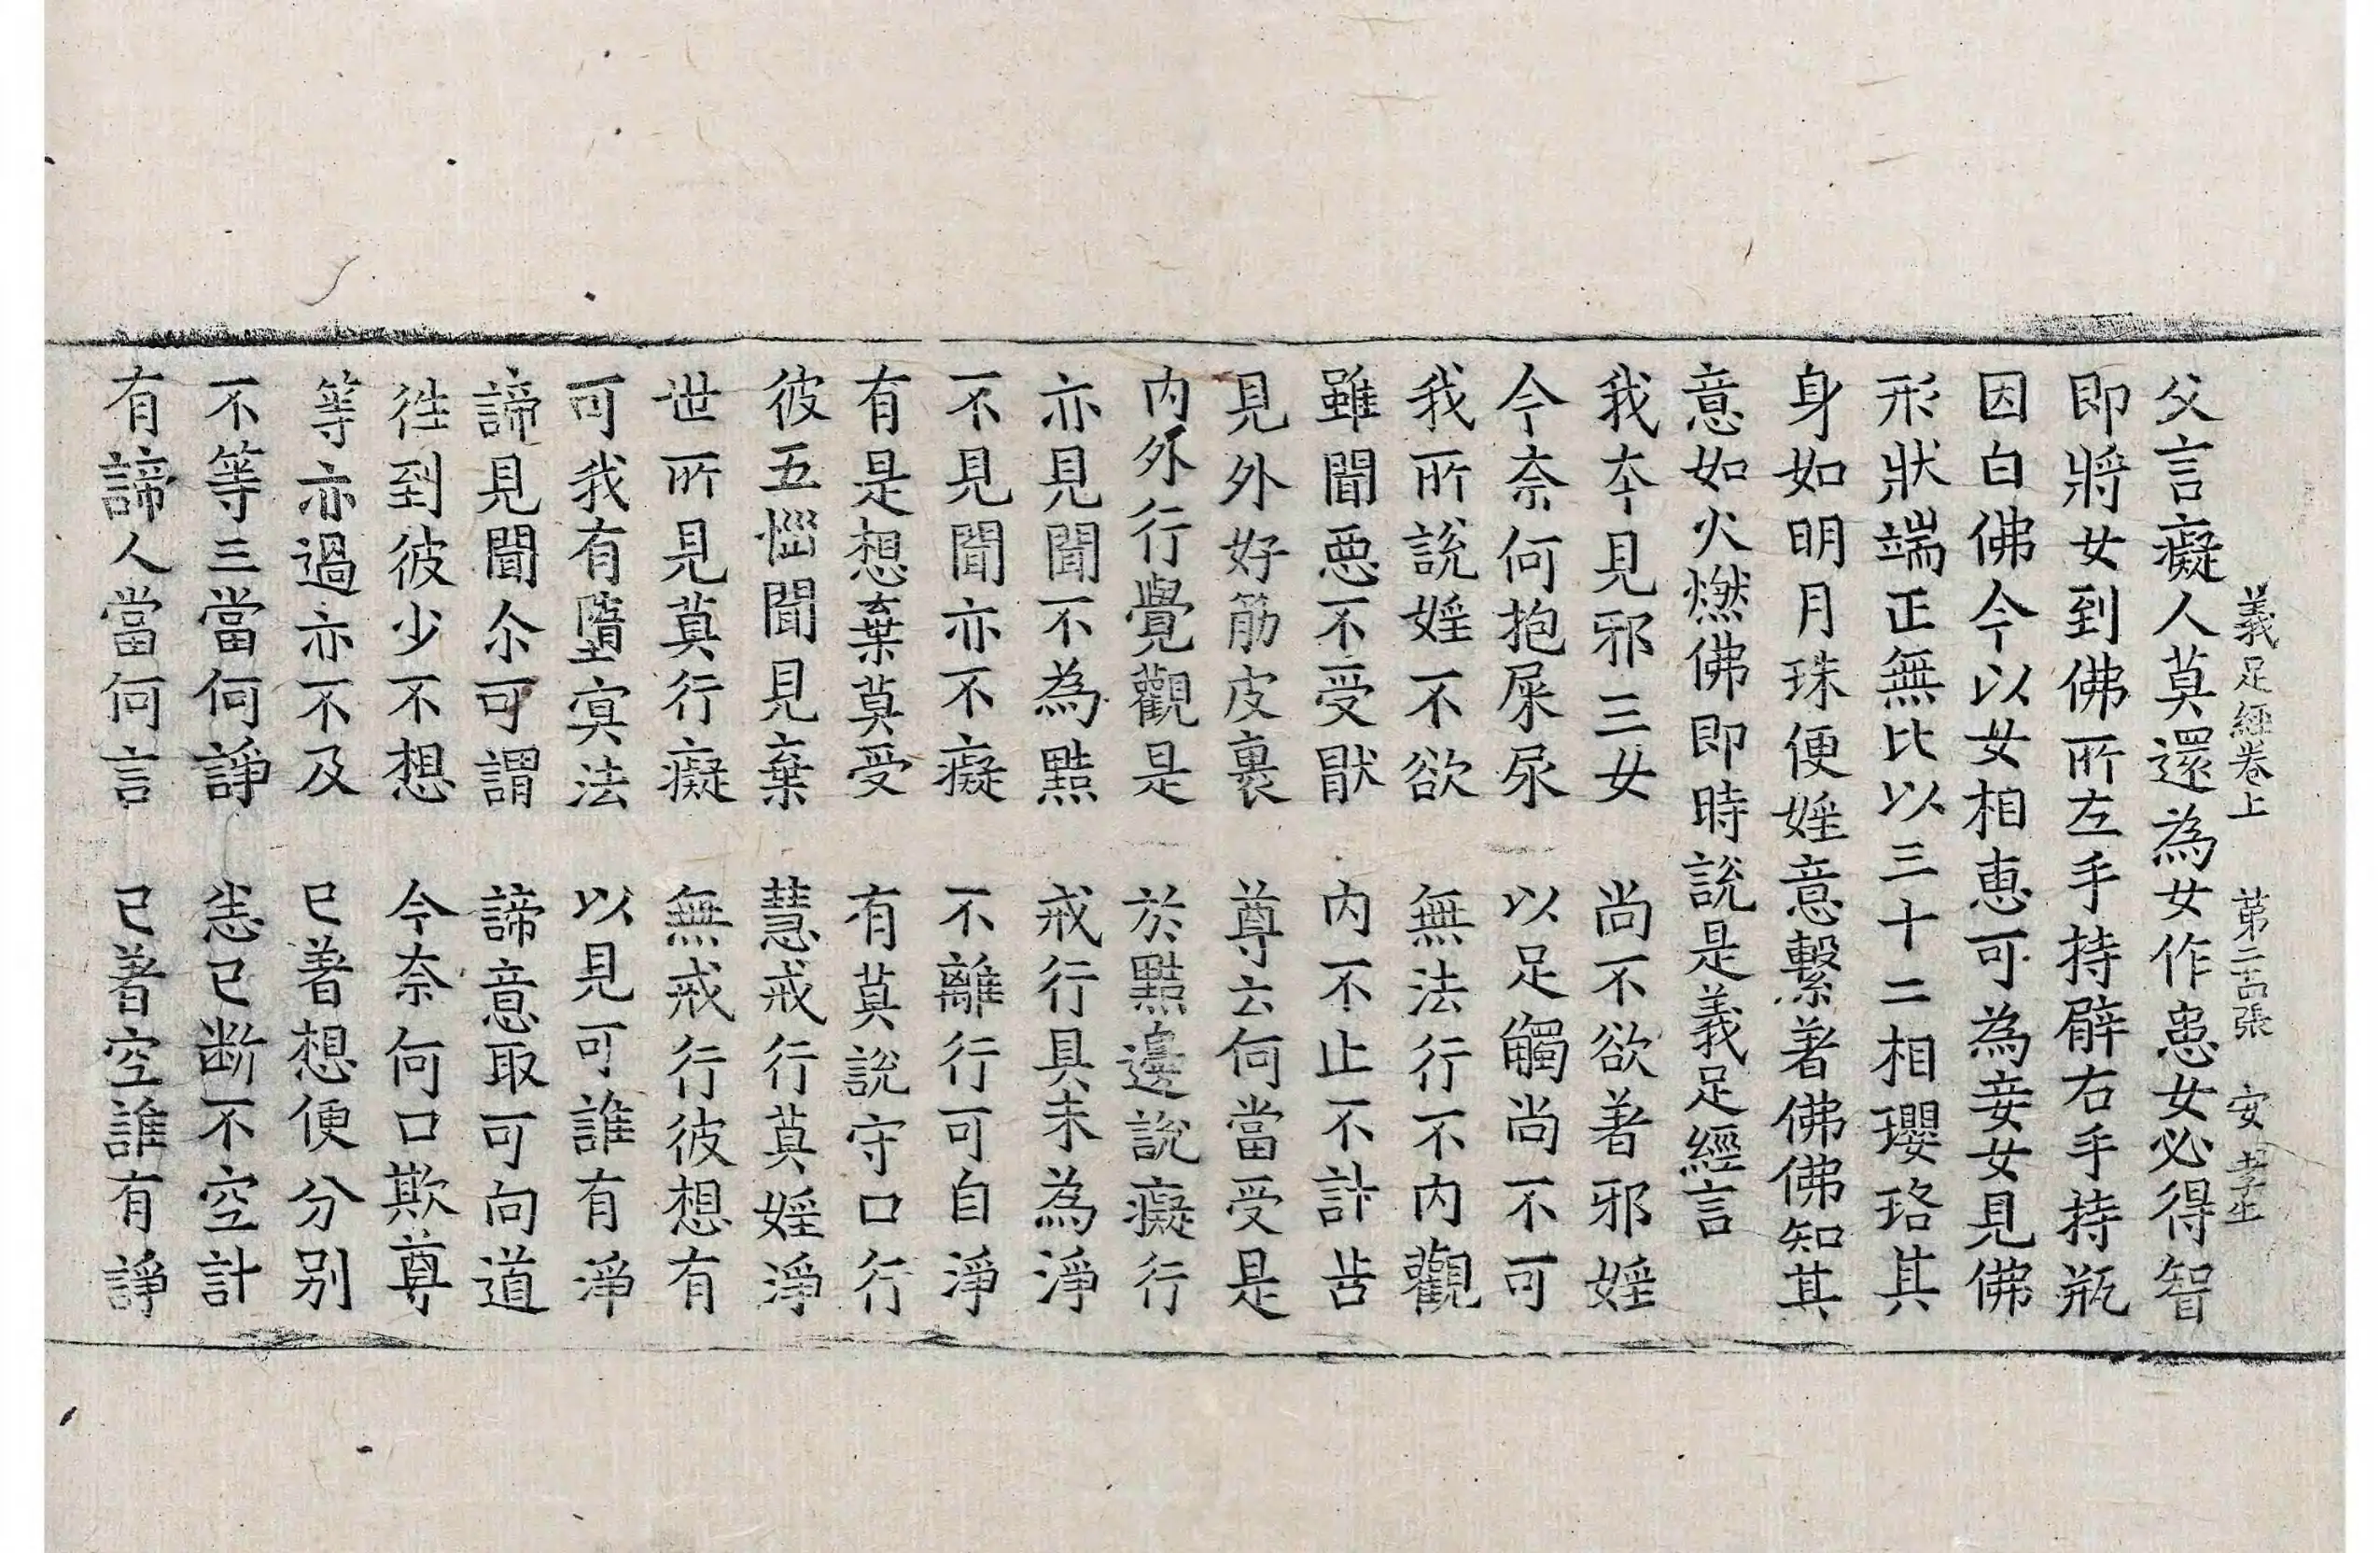 義足經卷上 第二十張 安
父言癡人莫還為女作患女必得智
即將女到佛所左手持臂右手持瓶
因白佛今以女相惠可為妾女見佛
形狀端正無比以三十二相瓔珞其
身如明月珠便婬意繫著佛佛知其
意如火燃佛即時說是義足經言
我夲見邪三女 尚不欲著邪婬
今奈何抱屎尿 以足觸尚不可
我所說婬不欲 無法行不內觀
雖聞惡不受猒 內不止不計苦
見外好筋皮裹 尊云何當受是
內外行覺觀是 於黠邊說癡行
亦見聞不為黠 戒行具未為淨
不見聞亦不癡 不離行可自淨
有是想棄莫受 有莫說守口行
彼五惱聞見棄 慧戒行莫婬淨
世所見莫行癡 無戒行彼想有
可我有墮冥法 以見可誰有淨
諦見聞尒可謂 諦意取可向道
徃到彼少不想 今奈何口欺尊
等亦過亦不及 已著想便分別
不等三當何諍 悉已断不空計
有諦人當何言 已著空誰有諍